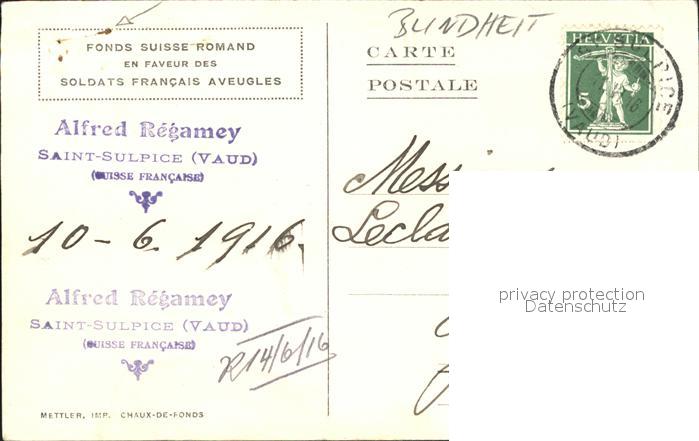 FONDS SUISSE ROMAND
EN FAVEUR DES
SOLDATS FRANÇAIS AVEUGLES
BLINDHEIT
CARTE
POSTALE
HELVETIA
5
(VAUD)
Alfred Régamey
SAINT-SULPICE (VAUD)
(SUISSE FRANÇAISE)
10-6.1916.
Alfred Régamey
SAINT-SULPICE (VAUD)
(SUISSE FRANÇAISE)
R 14/6/16
METTLER, IMP. CHAUX-DE-FONDS
privacy protection
Datenschutz